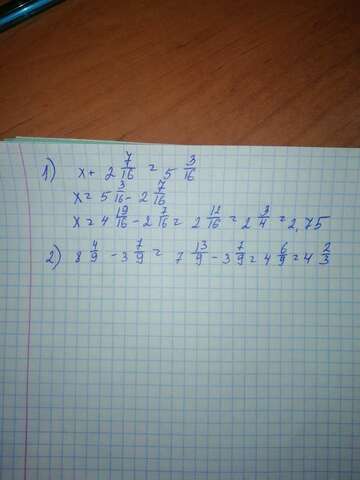 1) x + 2 7/16 = 5 3/16
x = 5 3/16 - 2 7/16
x = 4 19/16 - 2 7/16 = 2 12/16 = 2 3/4 = 2,75
2) 8 4/9 - 3 7/9 = 7 13/9 - 3 7/9 = 4 6/9 = 4 2/3